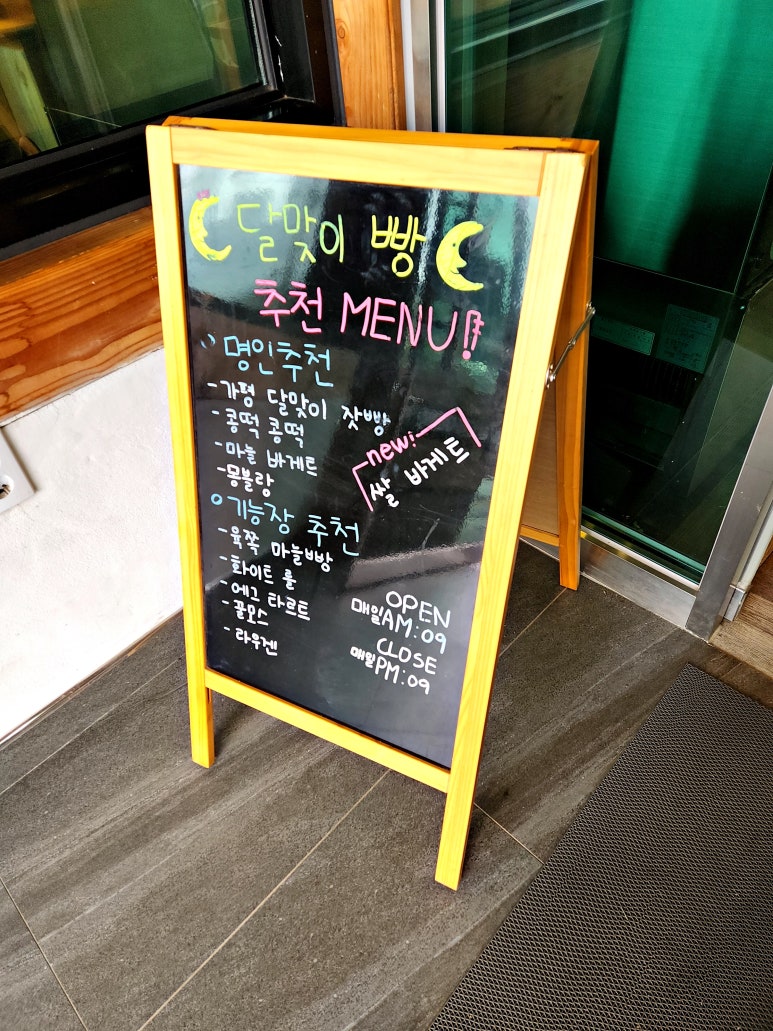 달맞이 빵
추천 MENU!
명인추천
- 가평 달맞이 잣빵
- 콩떡 콩떡
- 마늘 바게트
- 몽블랑
new!
쌀 바게트
기능장 추천
- 육쪽 마늘빵
- 화이트 롤
- 에그 타르트
- 꿀모스
- 라우겐
OPEN
매일 AM:09
CLOSE
매일 PM:09